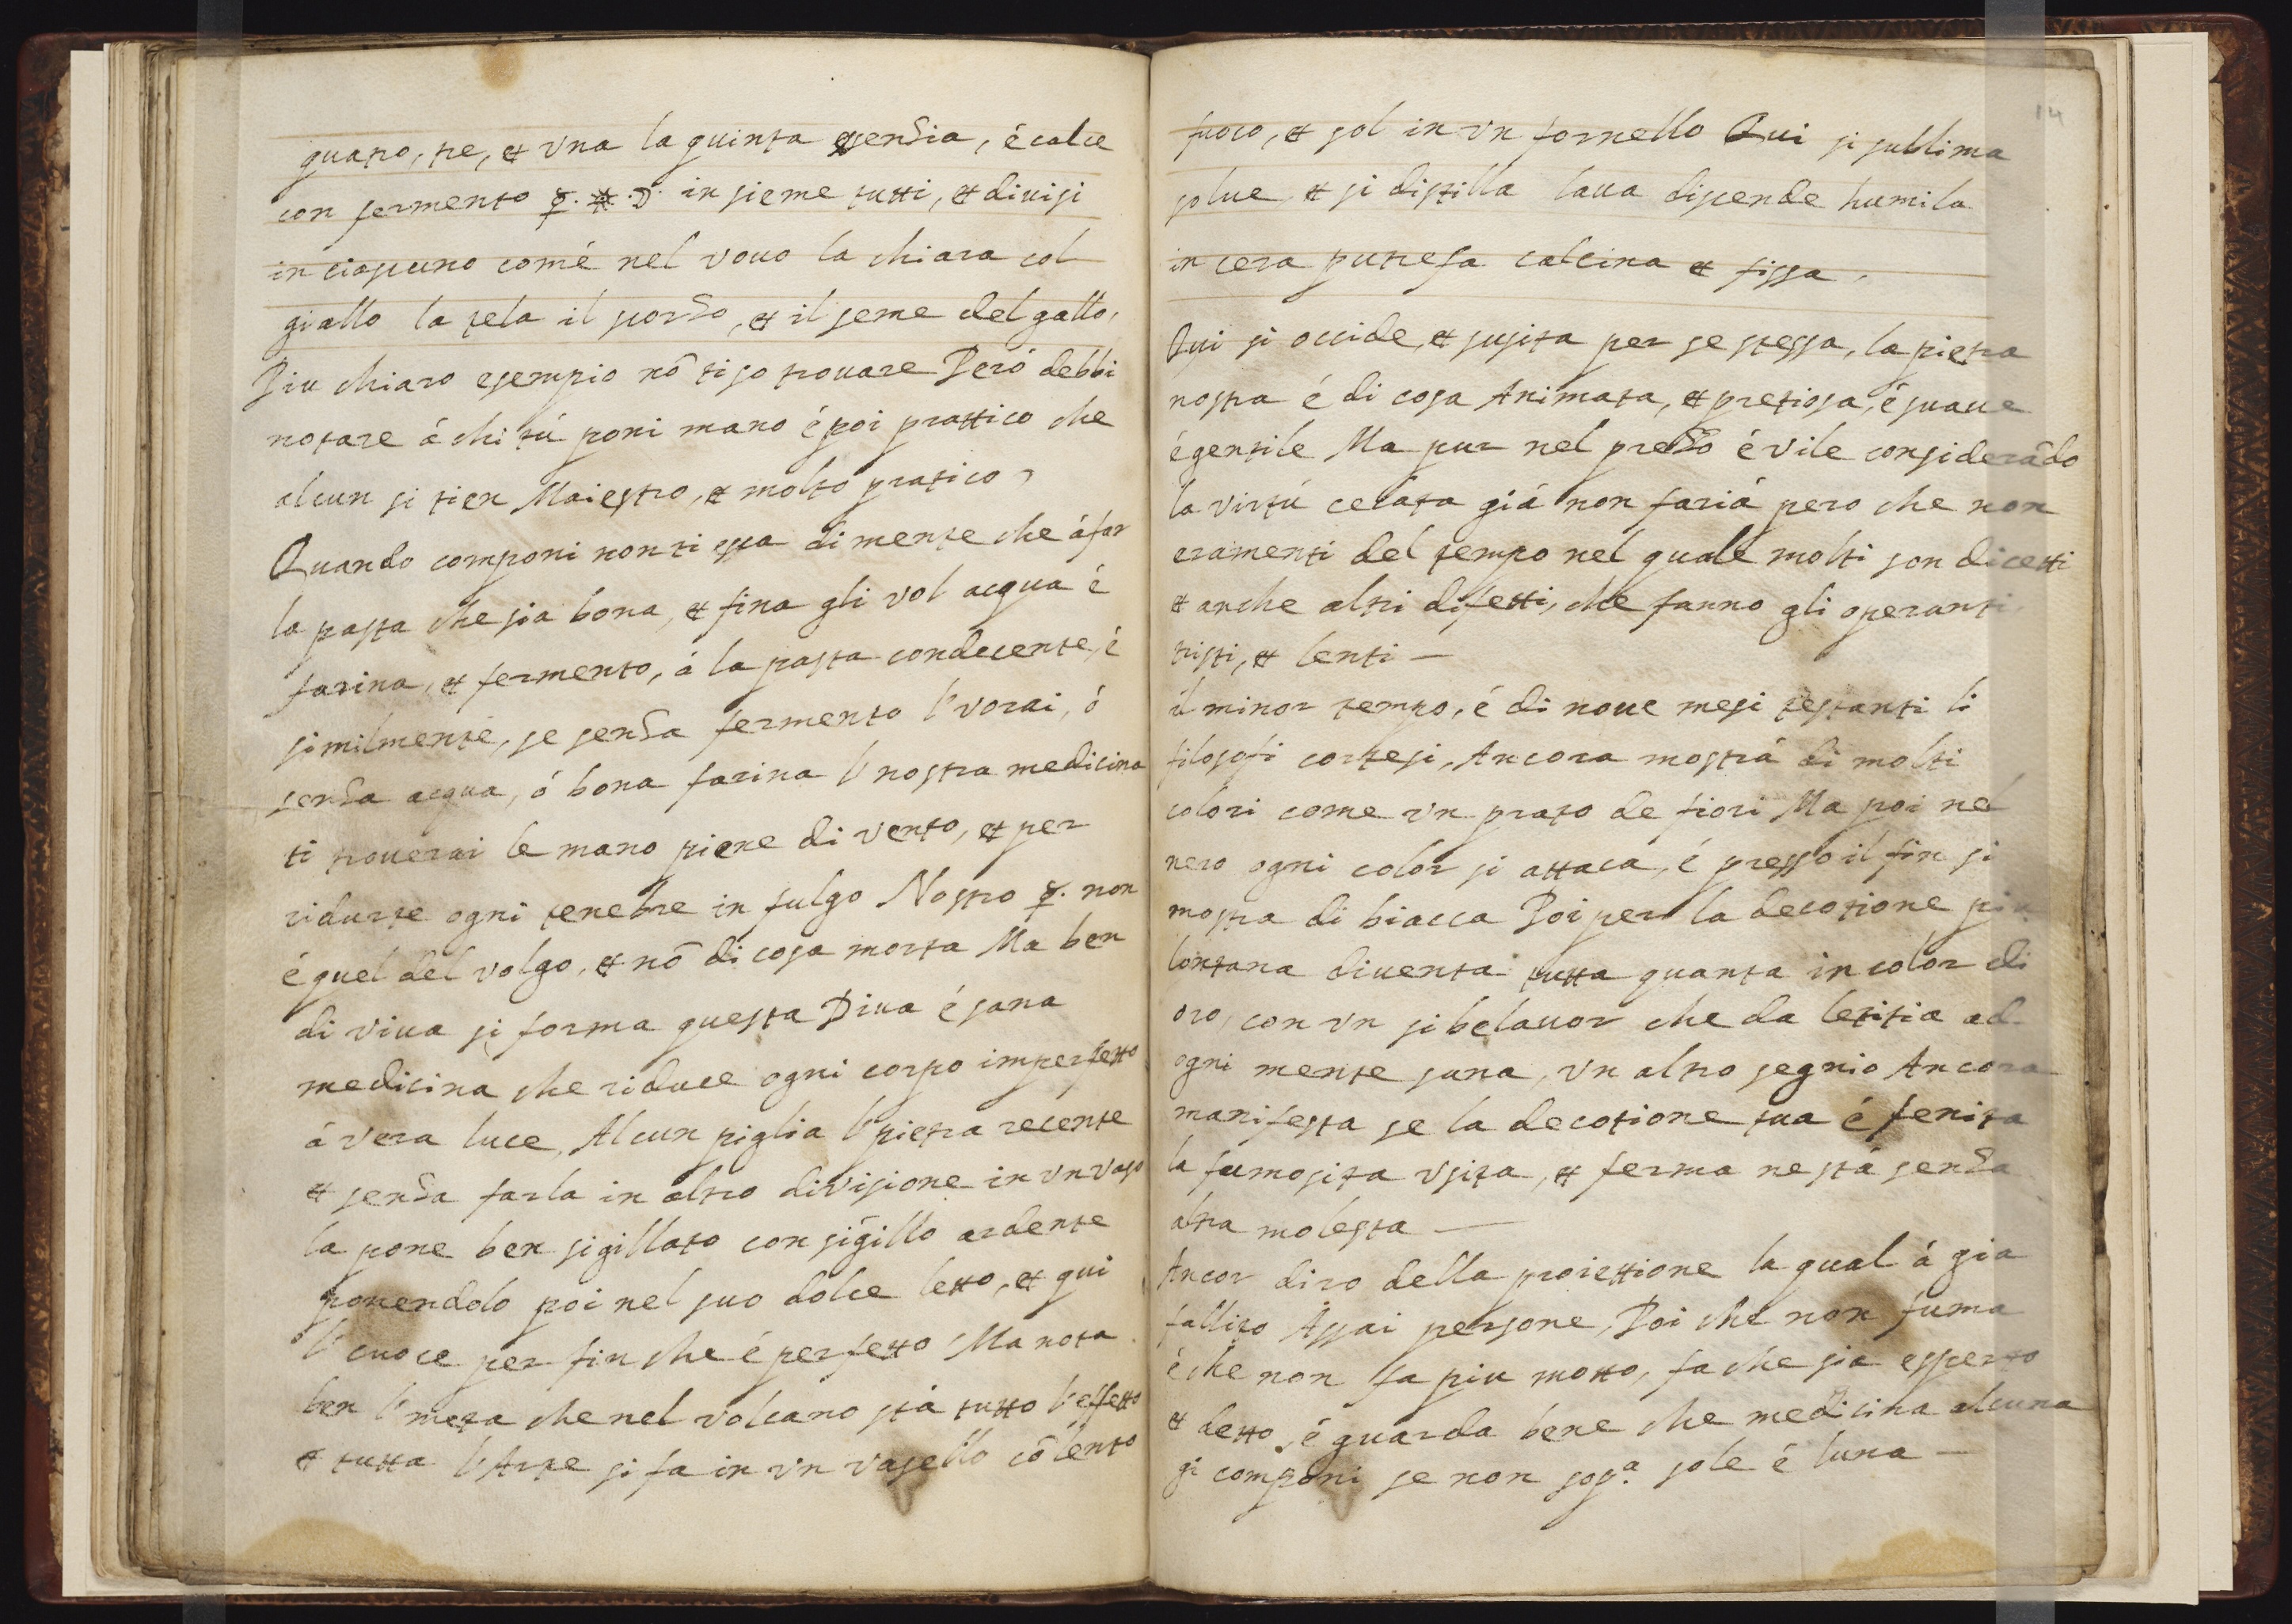 quatro, tre, et vna la quinta essenza, é calce
con fermento ☿. ✱. ☽. insieme tutti, et diuisi
in ciascuno comé nel vouo la chiara col
giallo la tela il scorzo, et il seme del gallo,
Piu chiaro esempio nõ ti so trouare Peró debbi
notare á chi tú poni mano é poi prattico che
alcun si tien Maiestro, et molto pratico,
Quando componi non ti essca di mente che á far
la pasta che sia bona, et fina gli vol acqua é
farina, et fermento, á la pasta condecente, é
similmente, se senza fermento l' vorai, ó
senza acqua, ó bona farina l' nostra medicina
ti trouerai le mano piene di vento, et per
ridurre ogni tenebre in fulgo Nostro ☿. non
é quel del volgo, et nõ di cosa morta Ma ben
di viua si forma questa Diua é sana
medicina che riduce ogni corpo imperfetto
á vera luce, Alcun piglia l' pietra recente
et senza farla in altro divisione in vn vaso
la pone ben sigillato con sigillo ardente
ponendolo poi nel suo dolce letto, et qui
l' cuoce per fin che é perfetto Ma nota
ben l' meta che nel volcano stá tutto l' effetto
et tutta l' Arte si fa in vn vasello cõ lento
14
fuoco, et sol in vn fornello Qui si sublima
solue, et si distilla laua discende humila
in cera putrefa calcina et fissa,
Qui si occide, et susita per se stessa, la pietra
nostra é di cosa Animata, et pretiosa, é suaue
é gentile Ma pur nel prezzo é vile considerãdo
la virtú celata giá non fariá pero che non
eramenti del tempo nel quale molti son dicetti
et anche altri difetti, che fanno gli operanti
tristi, et lenti —
il minor tempo, é di noue mesi testanti li
filosofi cortesi, Ancora mostrá di molti
colori come vn prato de fiori Ma poi nel
nero ogni color si attaca, é presso il fin si
mostra di biacca Poi per la decotione piu
lontana diuenta tutta quanta in color di
oro, con vn si bel auor che da letitia ad
ogni mente sana, vn altro segnio Ancora
manifesta se la decotione tua é fenita
la fumosita vsita, et ferma ne stá senza
altra molesta —
Ancor diro della proiettione la qual á gia
fallito Assai persone, Poi che non fuma
é che non fa piu motto, fa che sia esperto
et detto, é guarda bene che medicina alcuna
gi componi se non sop.ª sole é luna —